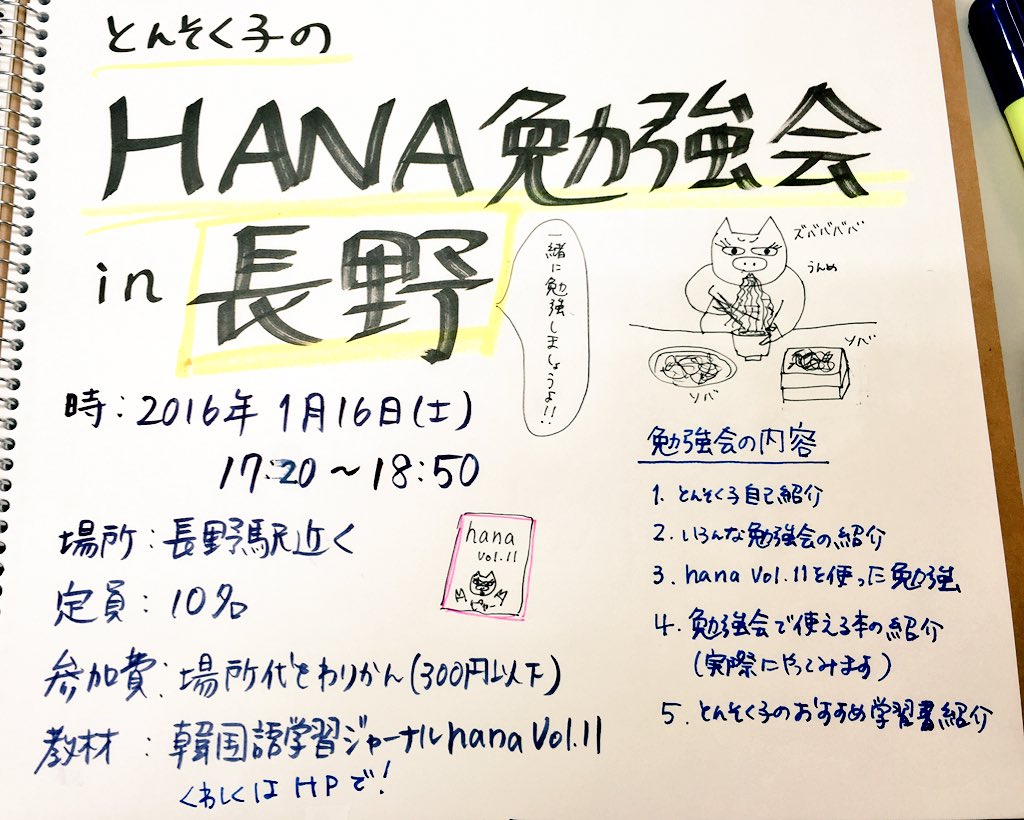 とんそく子の
HANA勉強会
in 長野
一緒に勉強しましょうよ!!
ズバババババ
うんめ
ソバ
ソバ
時：2016年 1月16日(土)
17:20～18:50
場所：長野駅近く
定員：10名
参加費：場所代をわりかん(300円以下)
教材：韓国語学習ジャーナルhana Vol.11
くわしくは HPで!
hana
vol.11
勉強会の内容
1. とんそく子自己紹介
2. いろんな勉強会の紹介
3. hana Vol.11を使った勉強
4. 勉強会で使える本の紹介
(実際にやってみます)
5. とんそく子のおすすめ学習書紹介